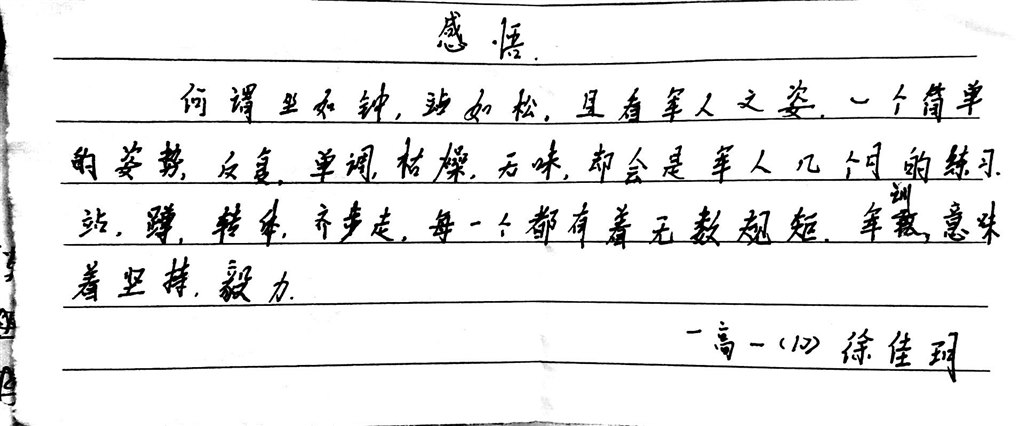 感悟.
何谓坐如钟,站如松,且看军人之姿.一个简单
的姿势,反复,单调,枯燥,无味,却会是军人几个月的练习.
站,蹲,转体,齐步走,每一个都有着无数规矩.军训,意味
着坚持.毅力.
一高一(12) 徐佳玥